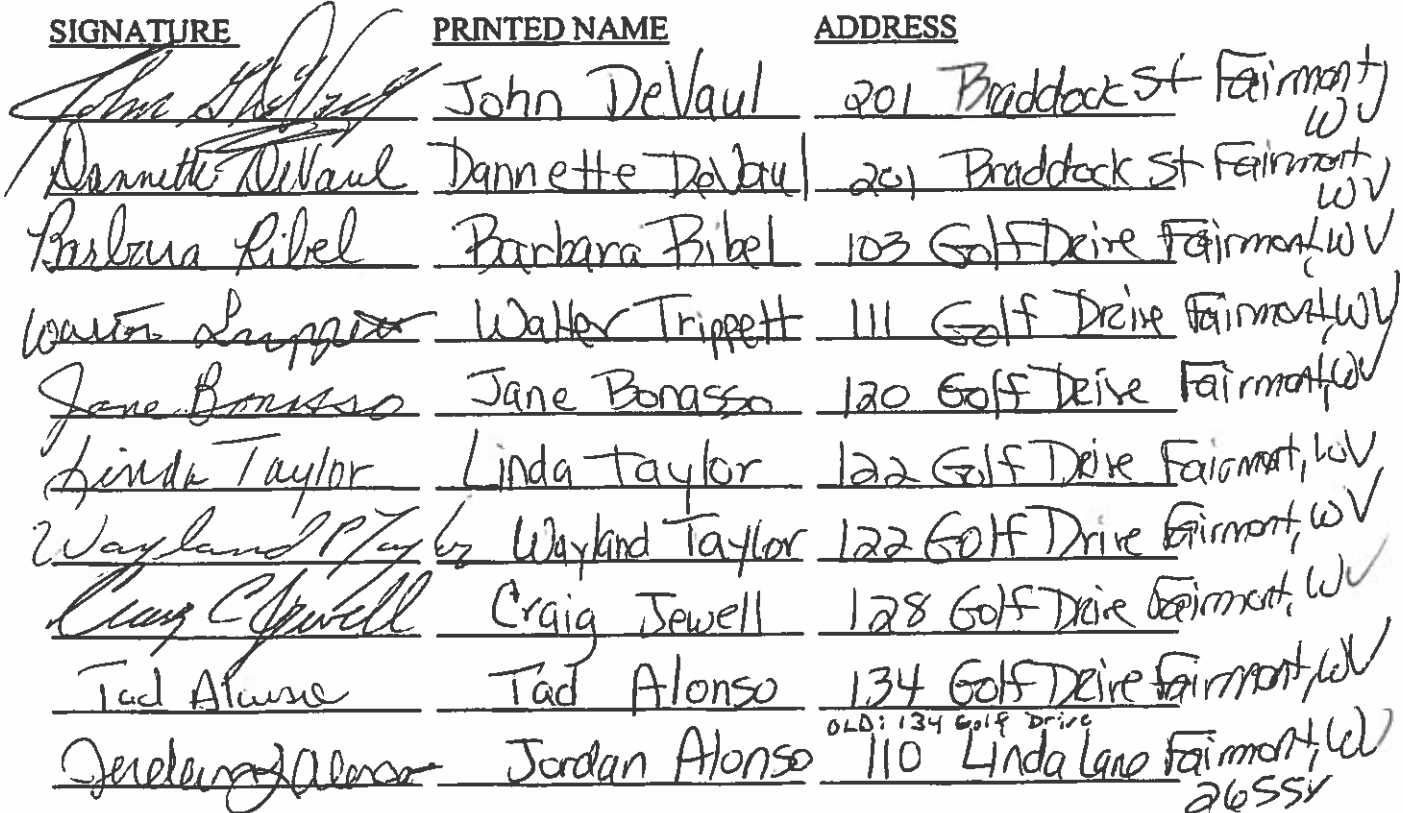 SIGNATURE PRINTED NAME ADDRESS
John DeVaul 201 Braddock St Fairmont, WV
Dannette DeVaul Dannette DeVaul 201 Braddock St Fairmont, WV
Barbara Ribel Barbara Ribel 103 Golf Drive Fairmont, WV
Walter Trippett Walter Trippett 111 Golf Drive Fairmont, WV
Jane Bonasso Jane Bonasso 120 Golf Drive Fairmont, WV
Linda Taylor Linda Taylor 122 Golf Drive Fairmont, WV
Wayland P Taylor Wayland Taylor 122 Golf Drive Fairmont, WV
Craig C Jewell Craig Jewell 128 Golf Drive Fairmont, WV
Tad Alonso Tad Alonso 134 Golf Drive Fairmont, WV
OLD: 134 Golf Drive
Jordan Alonso 110 Linda Lane Fairmont, WV
26554